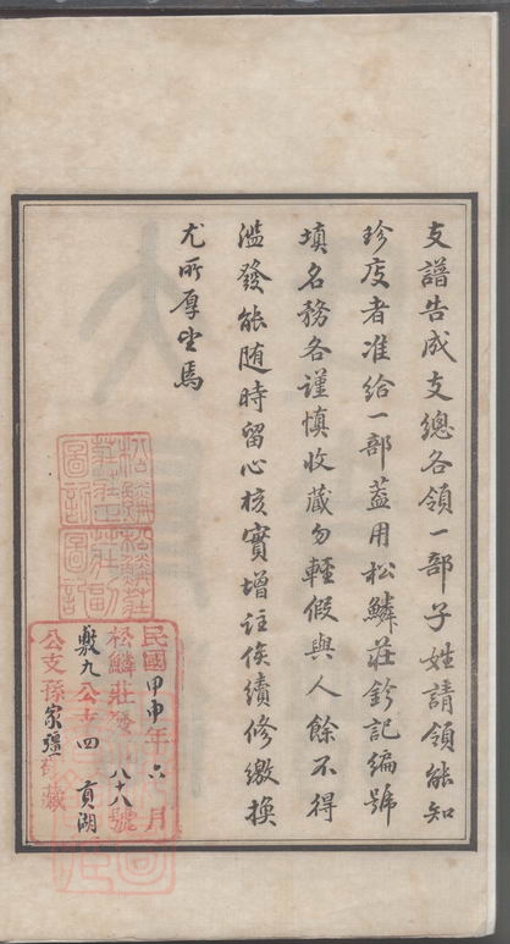 支譜告成支總各領一部子姓請領能知
珍庋者准給一部蓋用松鱗莊鈐記編號
填名務各謹慎收藏勿輕假與人餘不得
濫發能随時留心核實增註俟續修繳換
尤所厚望焉
松鱗莊莊正圖記
松鱗莊莊副圖記
民國甲申年六月
松鱗莊發 八十八號
敷九公支四 貢湖
公支孫家彊 藏